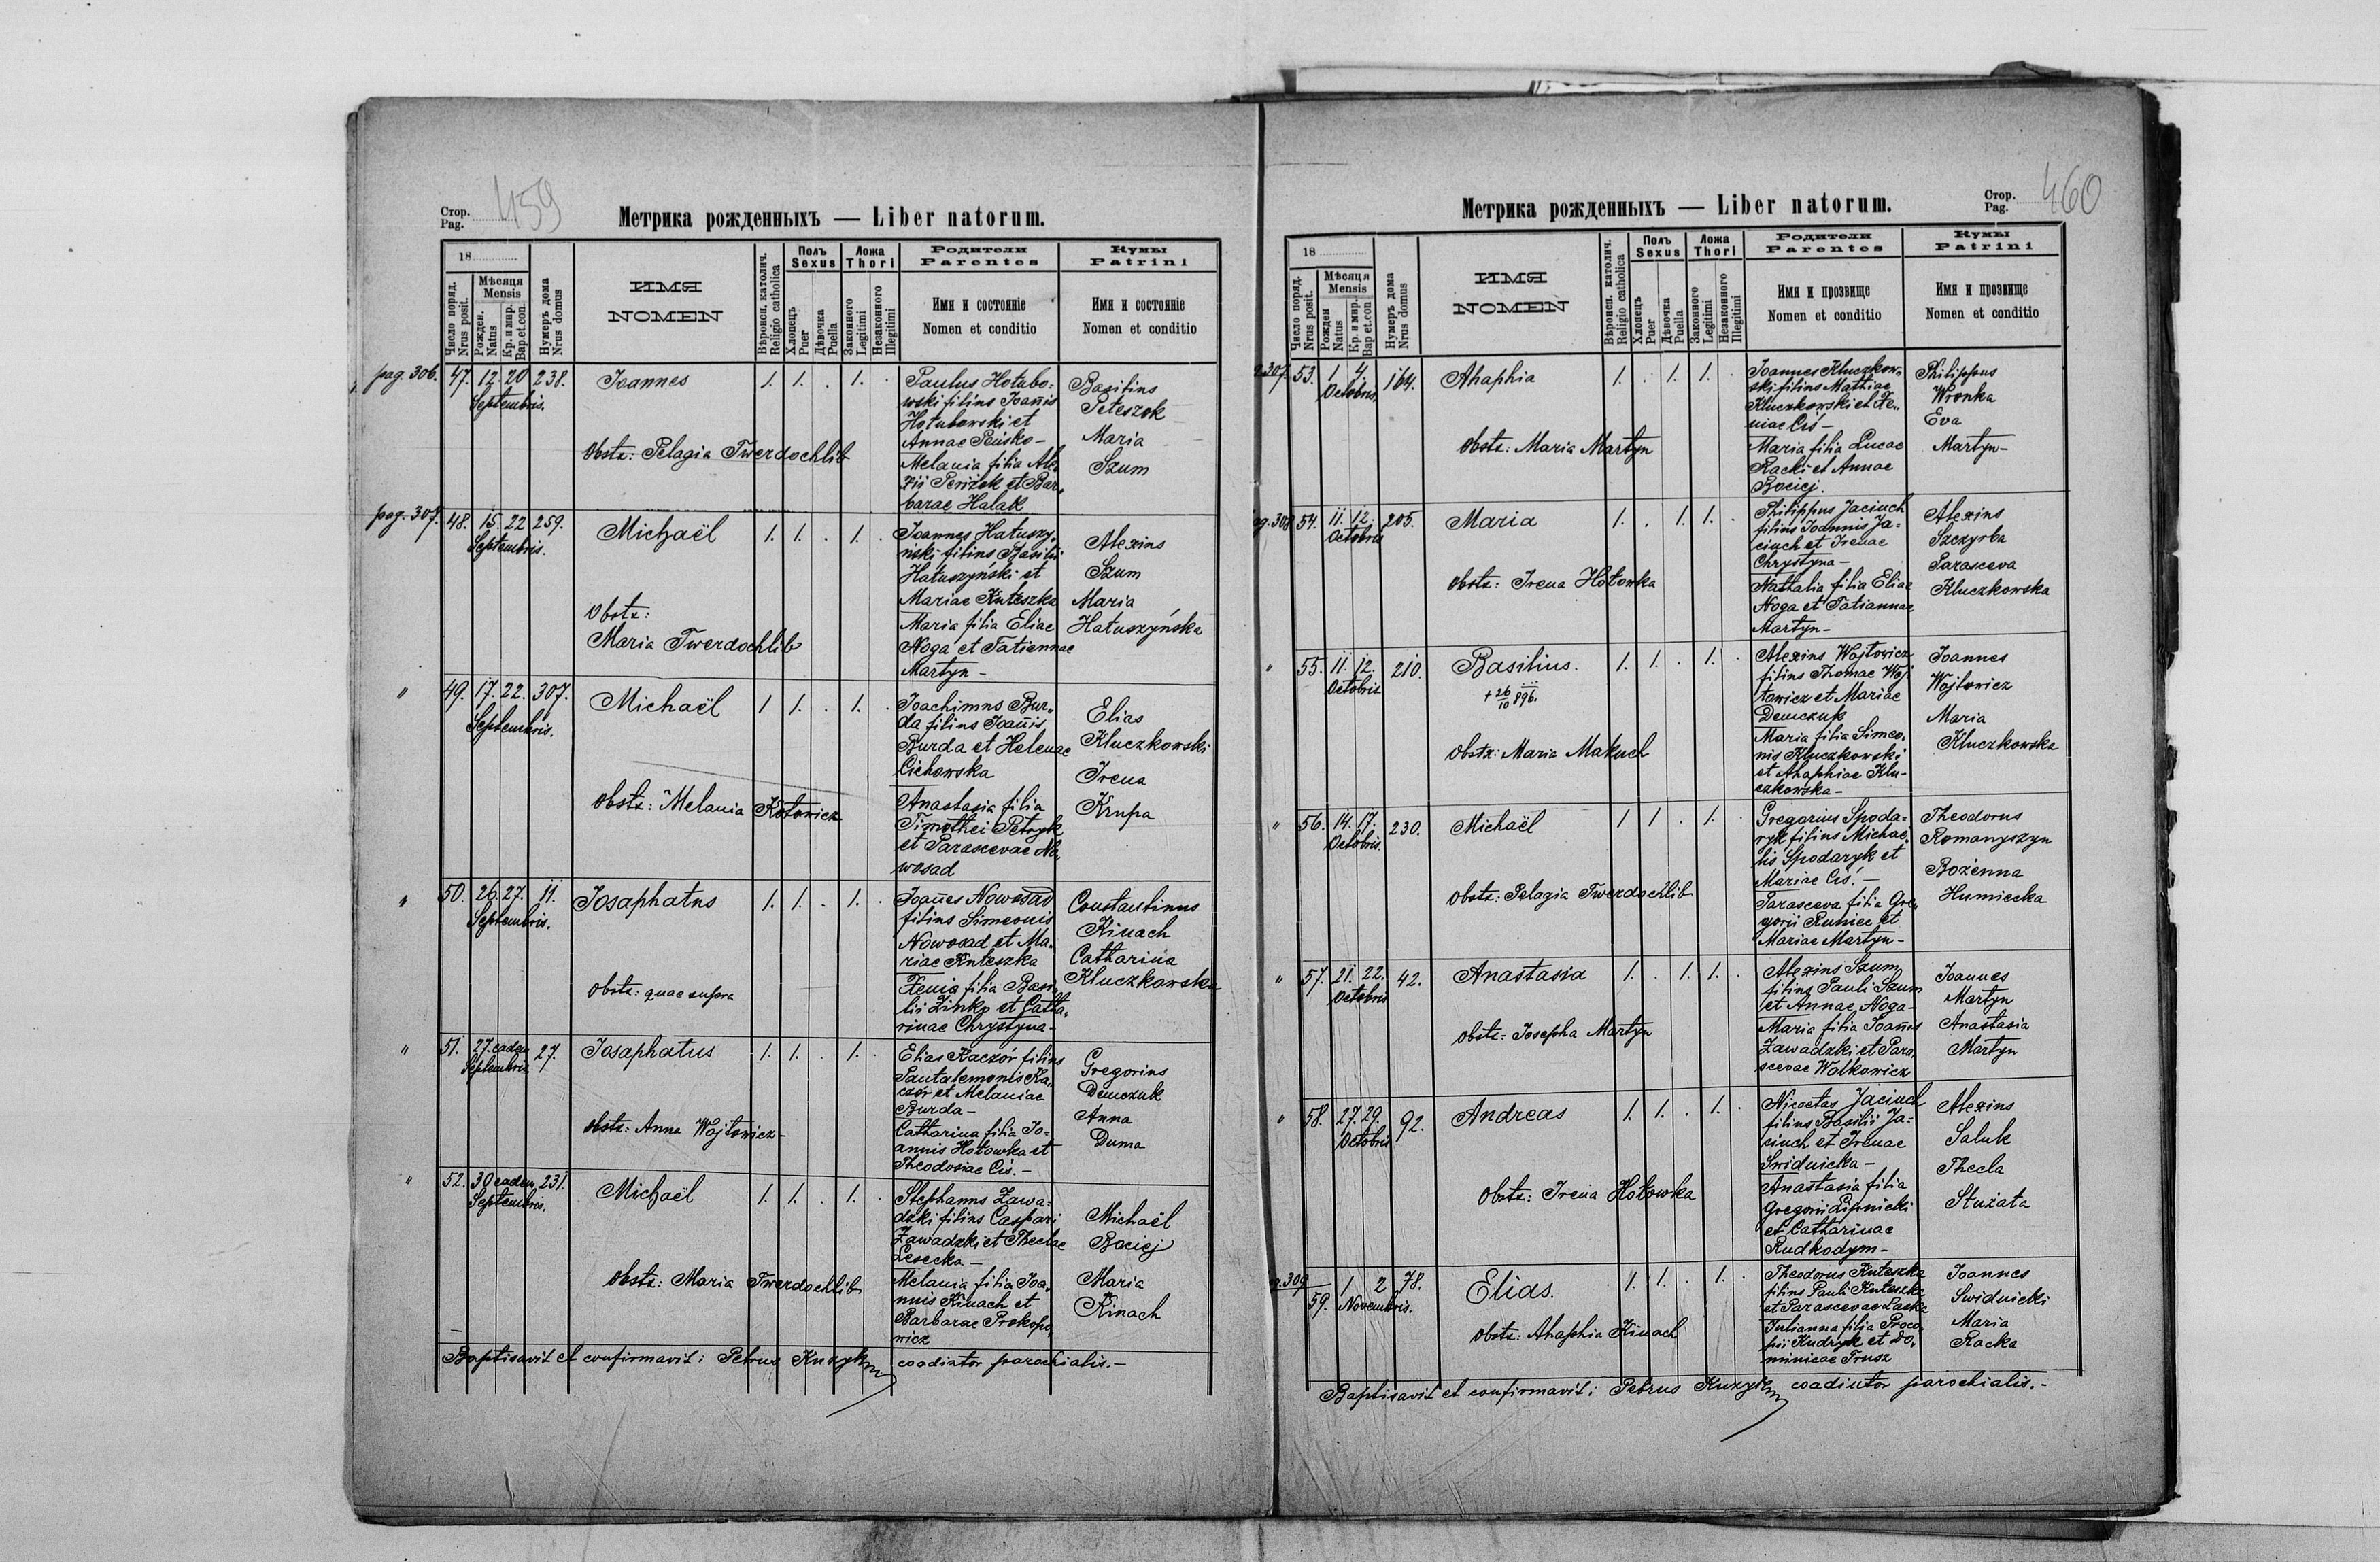 Стор.
Pag. 459
Метрика рожденныхъ — Liber natorum.
18
Число поряд.
Nrus posit.
Мѣсяця
Mensis
Рожден.
Natus
Кр. и мир.
Bap. et con.
Нумеръ дома
Nrus domus
ИМЯ
NOMEN
Вѣроисп. католич.
Religio catholica
Полъ
Sexus
Хлопецъ
Puer
Дѣвочка
Puella
Ложа
Thori
Законного
Legitimi
Незаконного
Illegitimi
Родители
Parentes
Имя и состояніе
Nomen et conditio
Кумы
Patrini
Имя и состояніе
Nomen et conditio
pag. 306.
47. 12. 20 238.
Septembris.
Joannes
1. 1. . 1. .
Obstx: Pelagia Twerdochlib
Paulus Hołubo-
wski filius Joannis
Hołubowski et
Annae
Melania filia Ale-
xii et Bar-
barae Halak
Basilius
Peteszok
Maria
Szum
pag. 307.
48. 15. 22 259.
Septembris.
Michaël
1. 1. . 1. .
Obstx:
Maria Twerdochlib
Joannes Hałuszy-
ński filius Basilii
Hałuszyński et
Mariae Kuteszka
Maria filia Eliae
Noga et Tatiannae
Martyn -
Alexius
Szum
Maria
Hałuszyńska
" 49. 17. 22. 307.
Septembris.
Michaël
1 1. . 1. .
Obstx: Melania Kotowicz
Joachimus Bur-
da filius Joannis
Burda et Helenae
Cichowska
Anastasia filia
Timothei Petryk
et Parascevae No-
wosad
Elias
Kluczkowski
Irena
Krupa
" 50. 26. 27. 11.
Septembris.
Josaphatus
1. 1. . 1. .
Obstx: quae supra
Joannes Nowosad
filius Simeonis
Nowosad et Ma-
riae Kuteszka
Xenia filia Basi-
lii Zinko et Catha-
rinae Chrystyna -
Constantinus
Kinach
Catharina
Kluczkowska
" 51. 27. eadem 27.
Septembris
Josaphatus
1. 1. . 1. .
Obstx: Anna Wojtowicz -
Elias Kaczór filius
Pantalemonis Ka-
czór et Melaniae
Burda -
Catharina filia Jo-
annis Hołowka et
Theodosiae Ciś. -
Gregorius
Demczuk
Anna
Duma
" 52. 30 eadem 231.
Septembris.
Michaël
1. 1. . 1. .
Obstx: Maria Twerdochlib
Stephanus Zawa-
dzki filius Caspari
Zawadzki et Theclae
Lesecka -
Melania filia Joa-
nnis Kinach et
Barbarae Prokopo-
wicz
Michaël
Bociej
Maria
Kinach
Baptisavit et confirmavit: Petrus Kuzyk coadiutor parochialis. -
Стор.
Pag. 460
Метрика рожденныхъ — Liber natorum.
18
Число поряд.
Nrus posit.
Мѣсяця
Mensis
Рожден
Natus
Кр. и мир.
Bap et con
Нумеръ дома
Nrus domus
ИМЯ
NOMEN
Вѣроисп. католич.
Religio catholica
Полъ
Sexus
Хлопецъ
Puer
Дѣвочка
Puella
Ложа
Thori
Законного
Legitimi
Незаконного
Illegitimi
Родители
Parentes
Имя и прозвище
Nomen et conditio
Кумы
Patrini
Имя и прозвище
Nomen et conditio
307. 53. 1. 4. 164.
Octobris.
Ahaphia
1. . 1. 1. .
Obstx: Maria Martyn
Joannes Kluczkow-
ski filius Mathiae
Kluczkowski et Xe-
niae Ciś -
Maria filia Lucae
Racki et Annae
Bociej.
Philippus
Wronka
Eva
Martyn -
308 54. 11. 12. 205.
Octobris
Maria
1. . 1. 1. .
Obstx: Irena Hołowka
Philippus Jaciuch
filius Joannis Ja-
ciuch et Irenae
Chrystyna -
Nathalia filia Eliae
Noga et Tatiannae
Martyn -
Alexius
Szczyrba
Parasceva
Kluczkowska
" 55. 11. 12. 210.
Octobris
Basilius.
+ 26/10 896.
1. 1. . 1. .
Obstx: Maria Makuch
Alexius Wojtowicz
filius Thomae Woj-
towicz et Mariae
Demczuk
Maria filia Simeo-
nis Kluczkowski
et Ahaphiae Klu-
czkowska -
Joannes
Wojtowicz
Maria
Kluczkowska
" 56. 14. 17. 230.
Octobris.
Michaël
1 1 . 1. .
Obstx: Pelagia Twerdochlib
Gregorius Spoda-
ryk filius Michaë-
lis Spodaryk et
Mariae Ciś. -
Parasceva filia Gre-
gorii Runiec et
Mariae Martyn -
Theodorus
Romanyszyn
Bożenna
Humiecka
" 57. 21. 22. 42.
Octobris
Anastasia
1. . 1. 1. .
Obstx: Josepha Martyn
Alexius Szum
filius Pauli Szum
et Annae Noga -
Maria filia Joannis
Zawadzki et Para-
scevae Walkowicz
Joannes
Martyn
Anastasia
Martyn
" 58. 27. 29. 92.
Octobris
Andreas
1. 1. . 1. .
Obstx: Irena Hołowka
Nicetas Jaciuch
filius Basilii Ja-
ciuch et Irenae
Swidnicka -
Anastasia filia
Gregorii Lipnicki
et Catharinae
Rudkodym -
Alexius
Saluk
Thecla
Stużata
309
59. 1 2 78.
Novembris.
Elias.
1. 1. . 1. .
Obstx: Ahaphia Kinach
Theodorus Kuteszka
filius Pauli Kuteszka
et Parascevae Laska
Julianna filia Proco-
pii Kudryk et Do-
minicae Trusz
Joannes
Swidnicki
Maria
Racka
Baptisavit et confirmavit: Petrus Kuzyk coadiutor parochialis. -